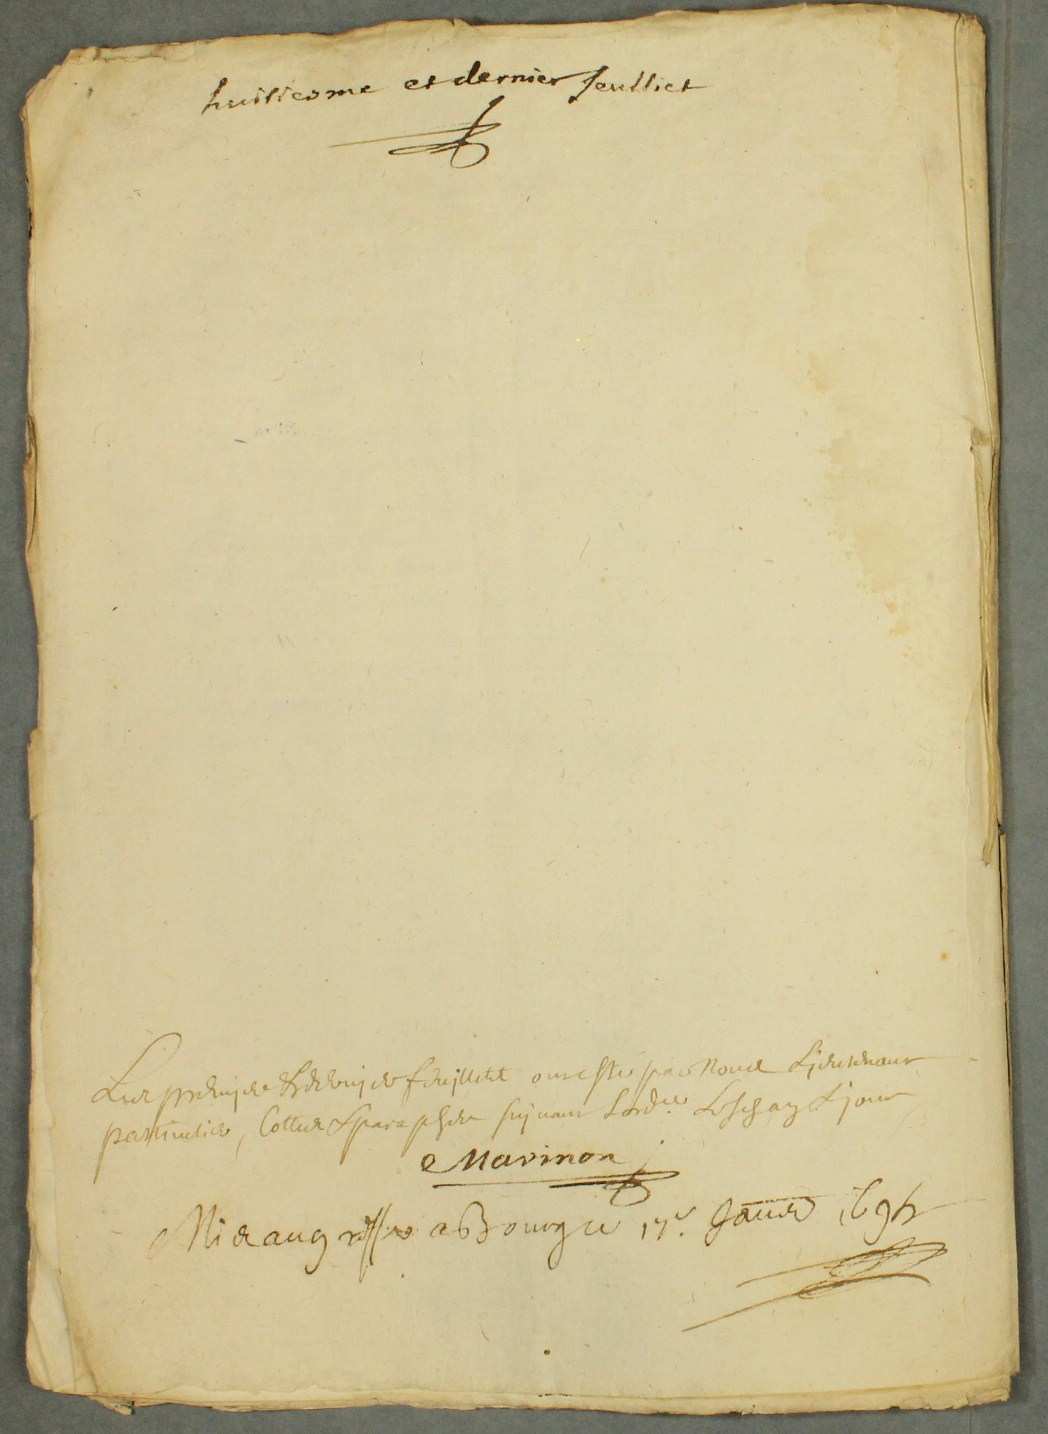 huitiesme et dernier feulliet
Les premjer & dernjer feujllet ont esté par Nous Ljeutenant
particulier, Cottez & paraphez sujvant Lord.ce
Marinon
Mis au greffe a Bourg ce 17.e Janvier 1696